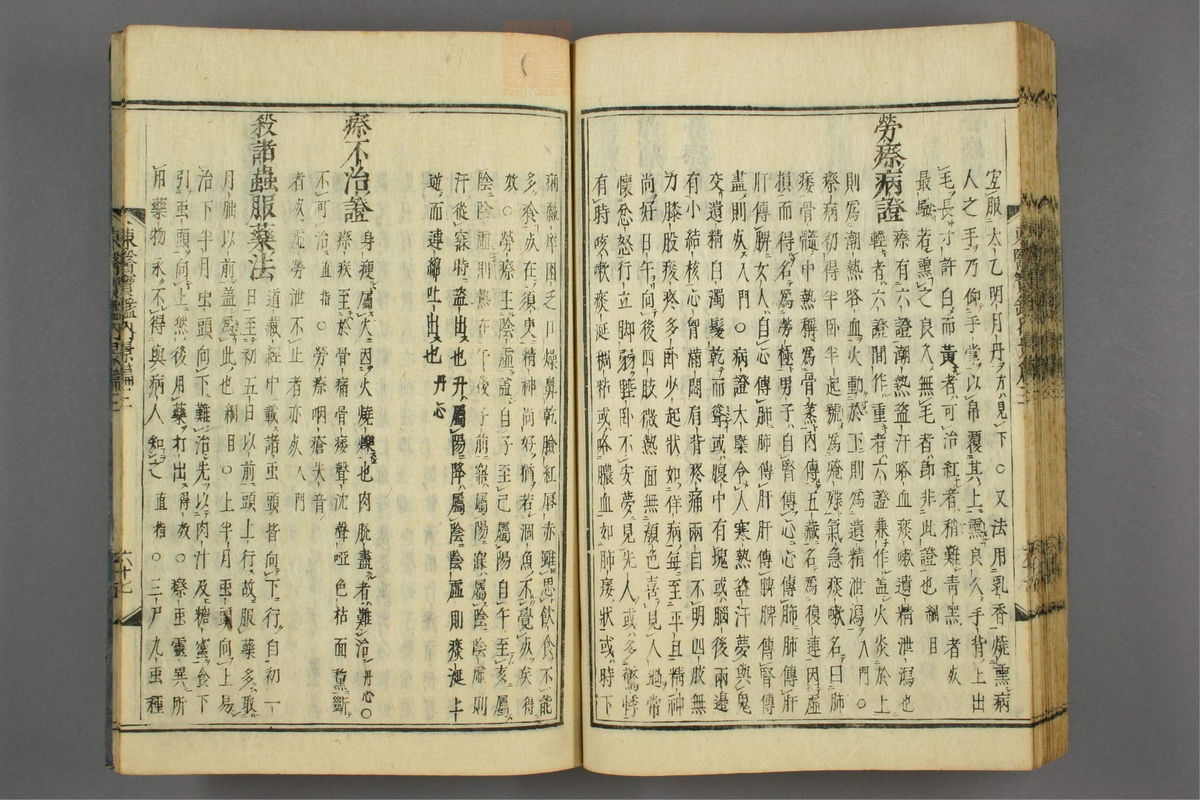 宜服太乙明月丹方見下○又法用乳香燒熏病
人之手乃仰手掌以帛覆其上熏良久手背上出
毛長寸許白而黃者可治紅者稍難青黑者死
最驗若熏之良久無毛者即非此證也綱目
勞瘵病證
瘵有六證潮熱盜汗咯血痰嗽遺精泄瀉也
輕者六證間作重者六證兼作盖火炎於上
則爲潮熱咯血火動於下則爲遺精泄瀉入門○
瘵病初得半卧半起號爲殗殜氣急痰嗽名曰肺
痿骨髓中熱稱爲骨蒸內傳五藏名爲復連因虛
損而得名爲勞極男子自腎傳心心傳肺肺傳肝
肝傳脾女人自心傳肺肺傳肝肝傳脾脾傳腎傳
盡則死入門○病證大槩令人寒熱盜汗夢與鬼
交遺精白濁髮乾而聳或腹中有塊或腦後兩邊
有小結核心胷滿悶肩背疼痛兩目不明四肢無
力膝股酸疼多卧少起狀如佯病每至平旦精神
尚好日午向後四肢微熱面無顏色喜見人過常
懷忿怒行立脚弱睡卧不安夢見先人或多驚悸
有時咳嗽痰涎稠粘或咯膿血如肺痿狀或時下
痢羸瘁困乏口燥鼻乾臉紅唇赤雖思飲食不能
多飡死在須庾精神尚好猶若涸魚不覺死矣得
效○勞瘵主陰虛盖自子至巳屬陽自午至亥屬
陰陰虛則熱在午後子前寤屬陽寐屬陰陰虛則
汗從寐時盜出也升屬陽降屬陰陰虛則痰涎上
逆而連綿吐出也丹心
瘵不治證
身瘦屬火因火燒爍也肉脫盡者難治丹心○
瘵疾至於骨痛骨痿聲沈聲啞色枯面黧斷
不可治直指○勞瘵咽瘡失音
者死虛勞泄不止者亦死入門
殺諸蟲服藥法
道藏經中載諸虫頭皆向下行自初一
日至初五日以前頭上行故服藥多取
月朏以前盖爲此也綱目○上半月虫頭向上易
治下半月虫頭向下難治先以肉汁及糖蜜食下
引虫頭向上然後用藥打出得效○瘵虫靈異所
用藥物末不得與病人知之直指○三尸九虫種
東醫寶鑑內景編三
六十七